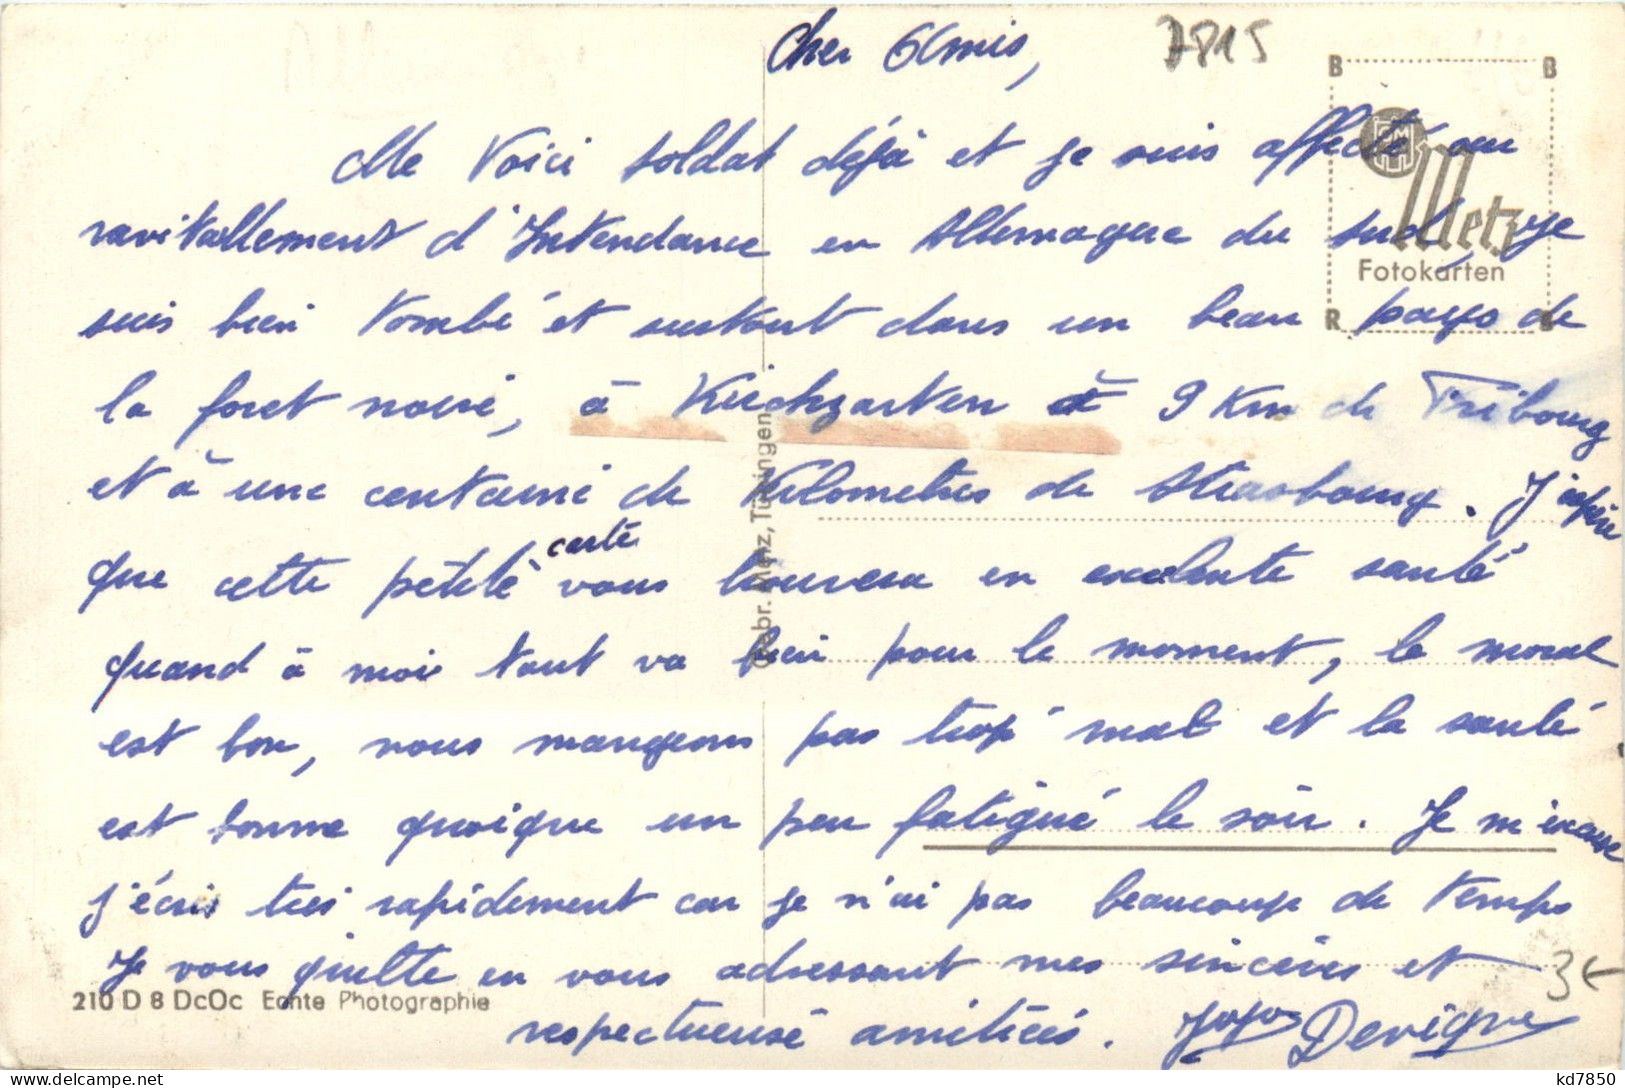 Cher Amis,
7815
B B
Me Voici soldat déjà et je suis affecté au
ravitallement d'Intendance en Allemagne du sud, je
Metz
Fotokarten
suis bien tombé et surtout dans un beau pays de
R
la foret noire, à Kirchzarten à 9 Km de Fribourg
et à une centaine de Kilometres de Strasbourg. J'espère
que cette petite carte vous trouvera en excelente santé
quand à moi tout va bien pour le moment, le moral
est bon, nous mangeons pas trop mal et la santé
est bonne quoique un peu fatigué le soir. Je m'excuse
j'écris très rapidement car je n'ai pas beaucoup de temps
Je vous quitte en vous adressant mes sincères et
respectueuse amitiés. Jojo Devigne
3€
210 D 8 DcOc Echte Photographie
Gebr. Metz, Tübingen
kd7850